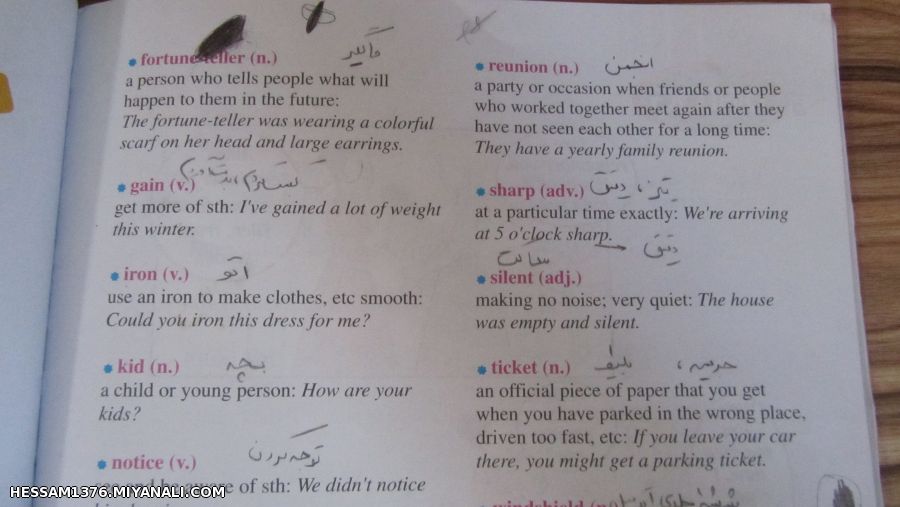 fortune-teller (n.)
a person who tells people what will
happen to them in the future:
The fortune-teller was wearing a colorful
scarf on her head and large earrings.
gain (v.)
get more of sth: I've gained a lot of weight
this winter.
iron (v.) اتو
use an iron to make clothes, etc smooth:
Could you iron this dress for me?
kid (n.) بچه
a child or young person: How are your
kids?
notice (v.) توجه کردن
be aware of sth: We didn't notice
reunion (n.) انجمن
a party or occasion when friends or people
who worked together meet again after they
have not seen each other for a long time:
They have a yearly family reunion.
sharp (adv.) تیز، دقیق
at a particular time exactly: We're arriving
at 5 o'clock sharp. دقیق
ساکت
silent (adj.)
making no noise; very quiet: The house
was empty and silent.
ticket (n.) بلیط ، جریمه
an official piece of paper that you get
when you have parked in the wrong place,
driven too fast, etc: If you leave your car
there, you might get a parking ticket.
windshield
HESSAM1376.MIYANALI.COM